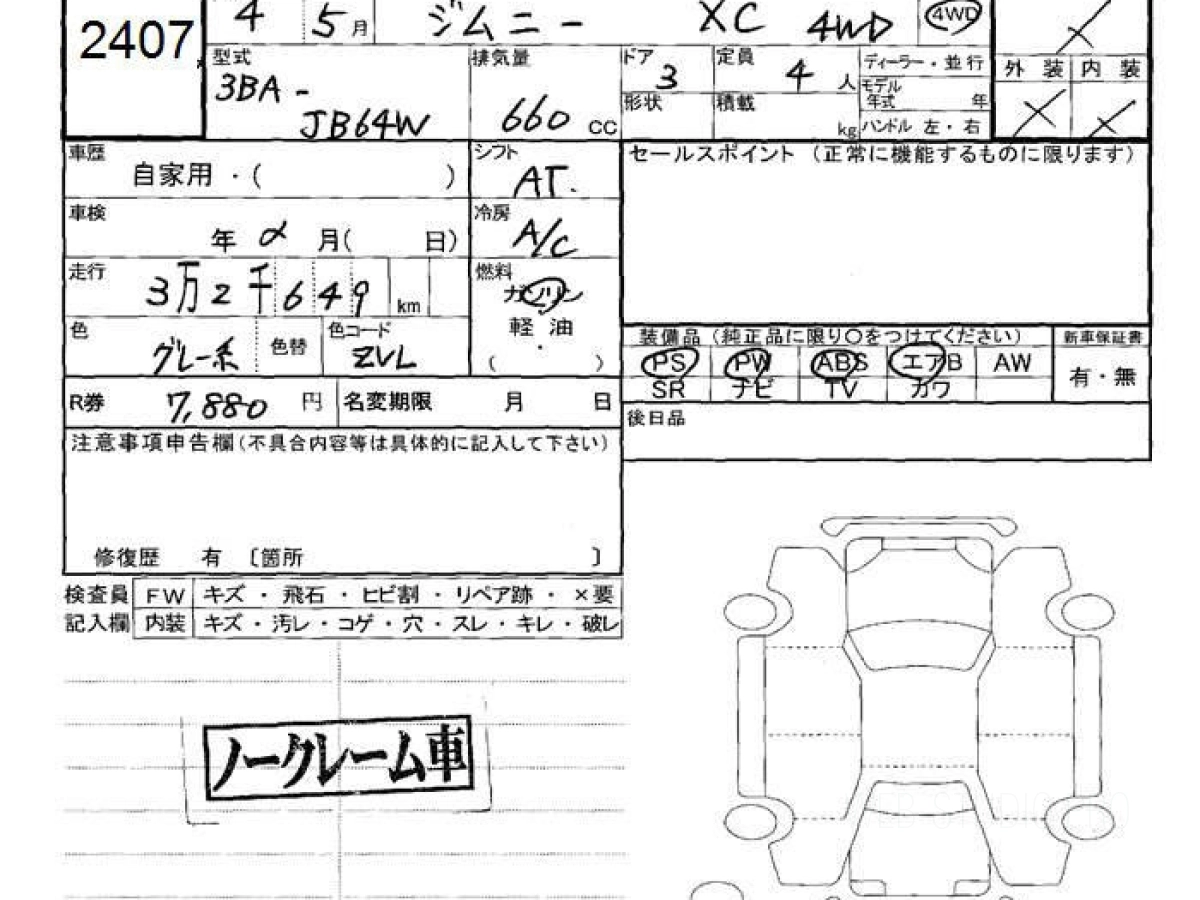 2407
4 5月 ジムニー XC 4WD 4WD
型式 3BA-JB64W
排気量 660 CC
ドア 3
定員 4 人
形状
積載 kg
ディーラー・並行
モデル年式 年
ハンドル 左・右
外装 内装
車歴 自家用・( )
シフト AT.
セールスポイント (正常に機能するものに限ります)
車検 年 2 月( 日)
冷房 A/C
走行 3万2千649 km
燃料 ガソリン
軽油
・
( )
色 グレー系 色替 色コード ZVL
装備品 (純正品に限り○をつけてください) 新車保証書
PS PW ABS エアB AW 有・無
SR ナビ TV カワ
R券 7,880 円 名変期限 月 日
後日品
注意事項申告欄(不具合内容等は具体的に記入して下さい)
修復歴 有 〔箇所 〕
検査員 FW キズ・飛石・ヒビ割・リペア跡・×要
記入欄 内装 キズ・汚レ・コゲ・穴・スレ・キレ・破レ
ノークレーム車